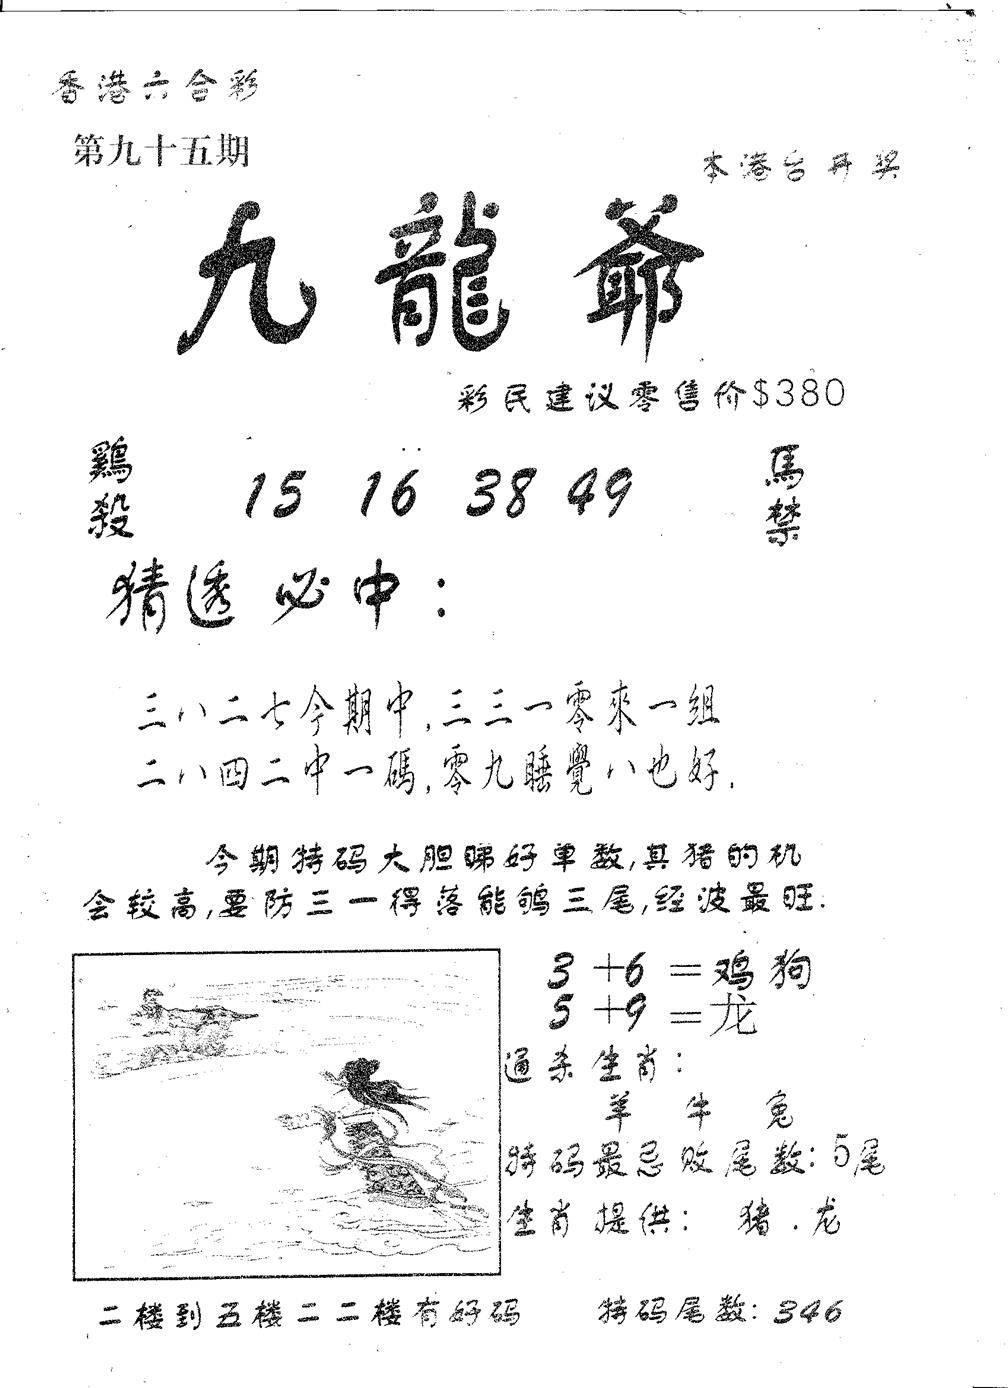 香港六合彩
第九十五期
本港台开奖
九龍爺
彩民建议零售价$380
鷄殺
15 16 38 49
馬禁
猜透必中：
三八二七今期中,三三一零來一組
二八四二中一碼,零九睡覺八也好.
今期特码大胆睇好单数,其猪的机
会较高,要防三一得落能鸲三尾,经波最旺.
3+6=鸡狗
5+9=龙
通杀生肖:
羊 牛 兔
特码最忌败尾数:5尾
生肖提供: 猪.龙
二楼到五楼二二楼有好码 特码尾数:346